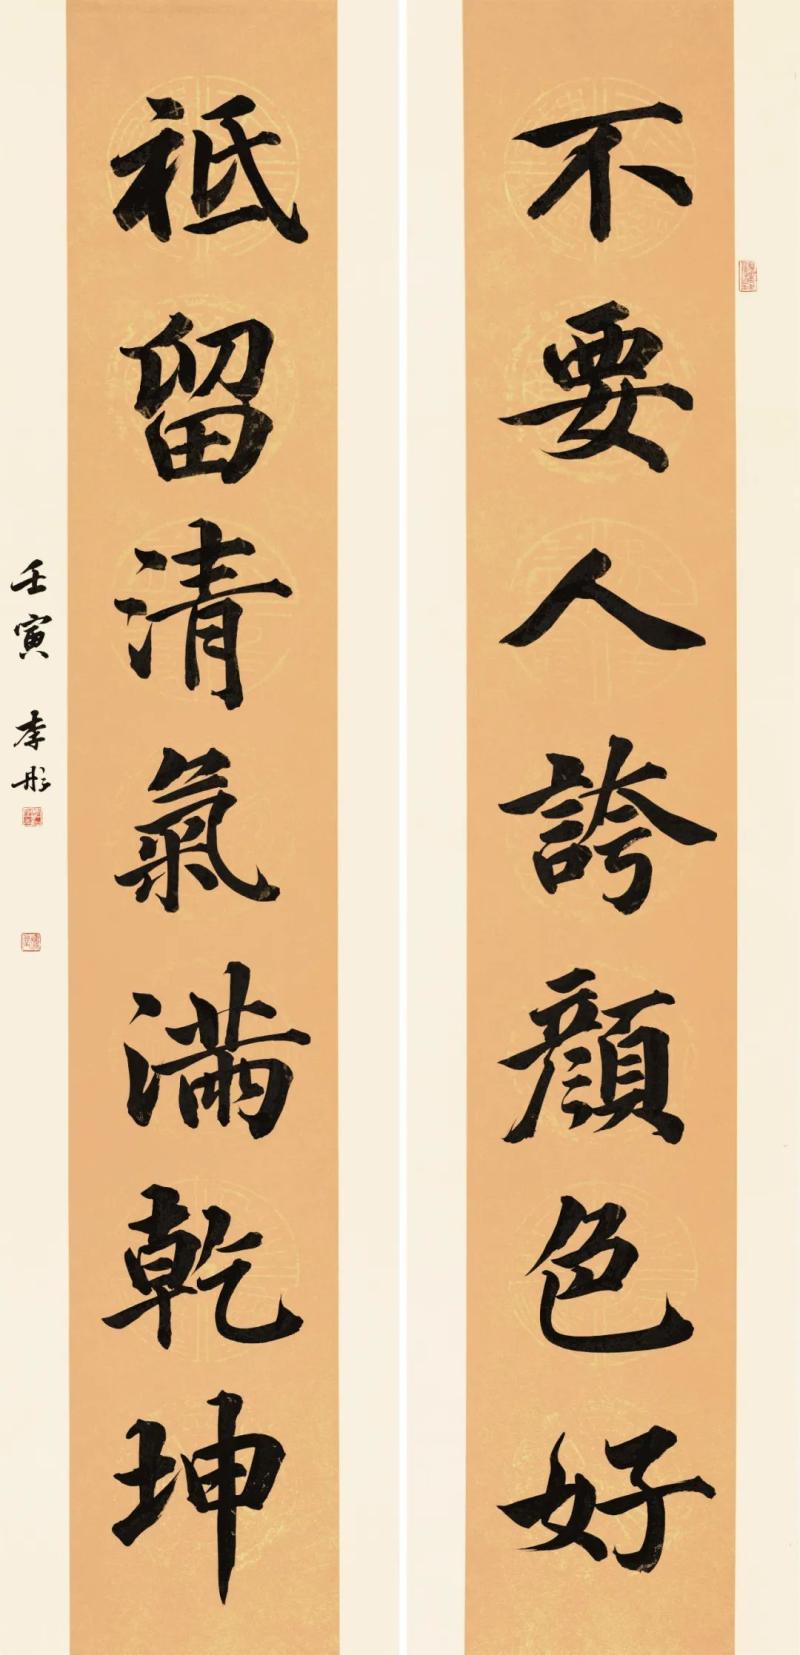 不要人誇顔色好
祗留清氣滿乾坤
壬寅 李彤